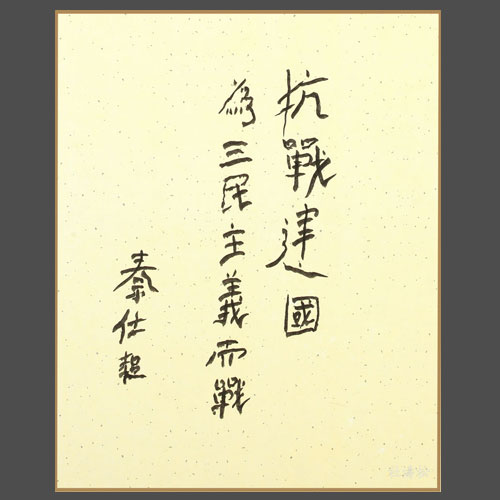 抗戰建國
為三民主義而戰
秦仕超